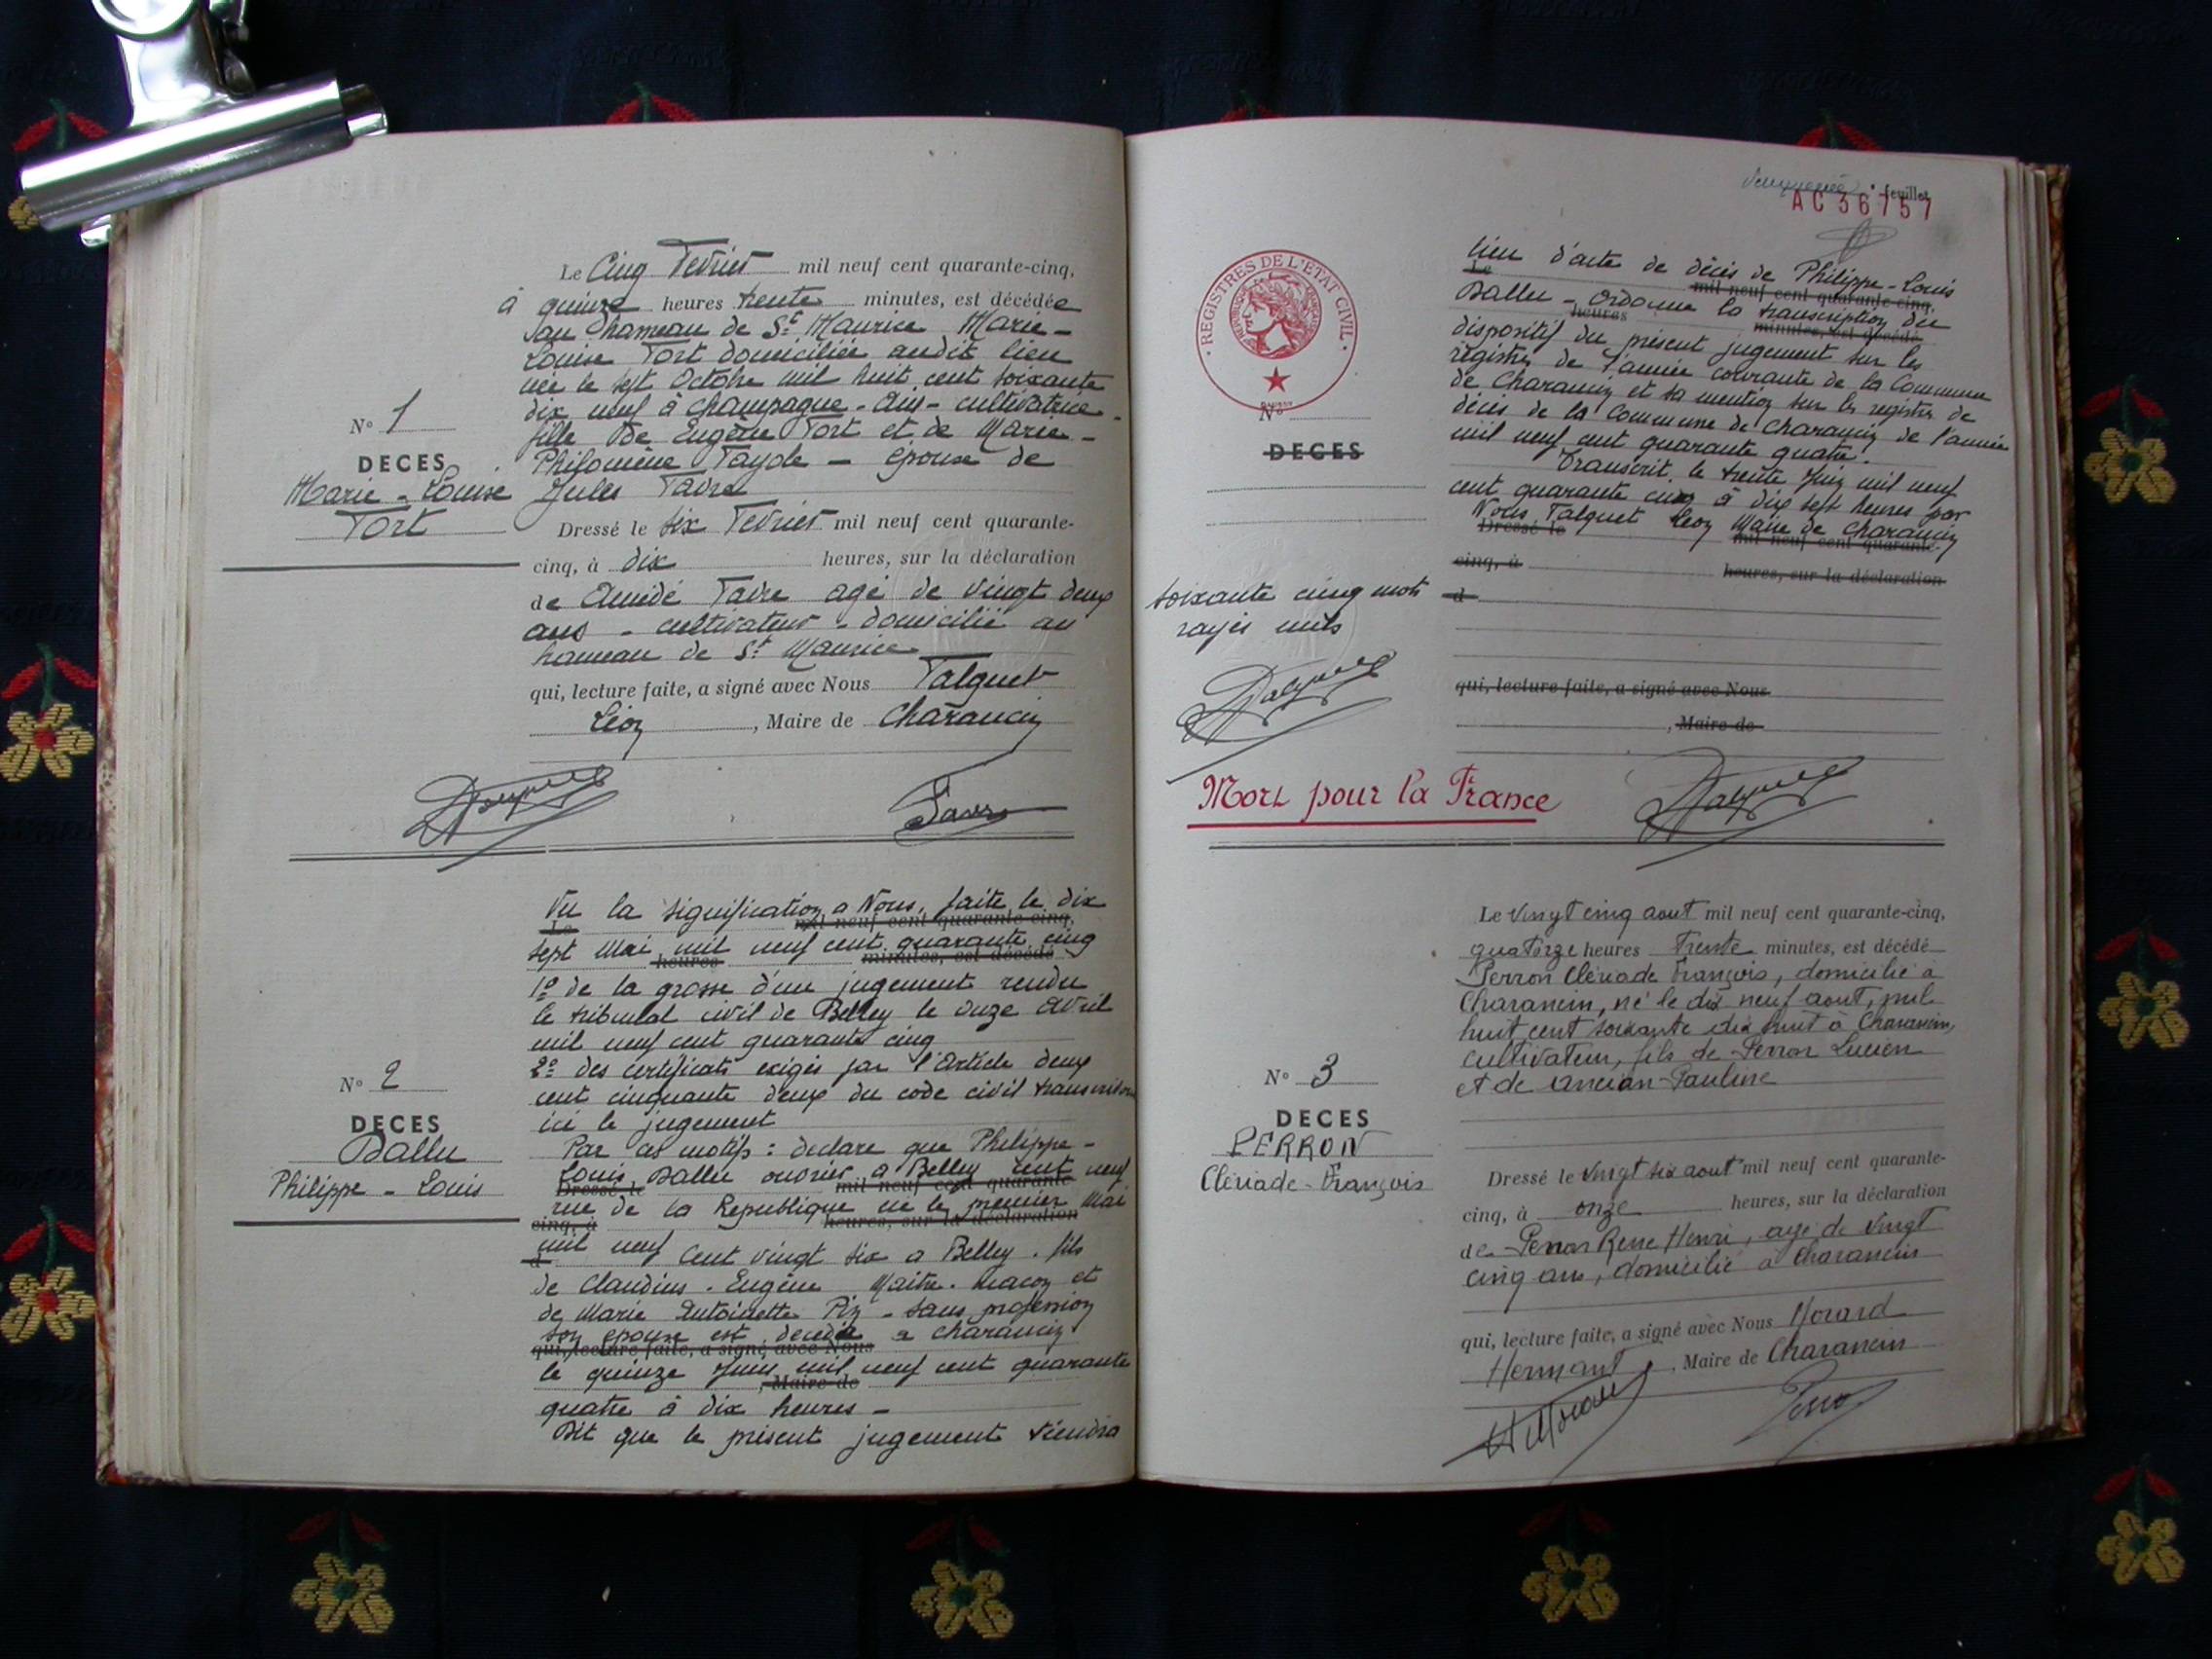 Le Cinq Février mil neuf cent quarante-cinq,
à quinze heures trente minutes, est décédée
au hameau de St Maurice Marie-
Louise Fort domiciliée audit lieu
née le sept Octobre mil huit cent soixante
dix neuf à Champagne - Ain - cultivatrice -
fille de Eugène Fort et de Marie-
Philomène Tayde - épouse de
Jules Favre
N° 1
DECES
Marie-Louise
Fort
Dressé le six Février mil neuf cent quarante-
cinq, à dix heures, sur la déclaration
de Amédé Favre agé de vingt deux
ans - cultivateur - domicilié au
hameau de St Maurice
qui, lecture faite, a signé avec Nous Falquet
Léon, Maire de Charancin
Falquet
Favre
Vu la signification a Nous, faite le dix
Le mil neuf cent quarante-cinq,
sept Mai mil neuf cent quarante cinq
heures minutes, est décédé
1° de la grosse d'un jugement rendu
le tribunal civil de Belley le onze Avril
mil neuf cent quarante cinq
2° des certificats exigés par l'Article deux
cent cinquante deux du code civil transcrivons
ici le jugement
N° 2
DECES
Dallu
Philippe - Louis
Par ces motifs : declare que Philippe -
Louis Dallu ouvrier a Belley cent neuf
Dressé le mil neuf cent quarante-
rue de la Republique né le premier Mai
cinq, à heures, sur la déclaration
mil neuf cent vingt six a Belley . fils
d
de Claudius - Eugène Maitre-Macon et
de Marie Antoinette Pin - sans profession
son epouse est decédé a Charancin
qui, lecture faite, a signé avec Nous
le quinze Juin mil neuf cent quarante
, Maire de
quatre à dix heures -
Dit que le présent jugement tiendra
feuillet
AC 36757
REGISTRES DE L'ETAT CIVIL
lieu d'acte de décès de Philippe-Louis
Le mil neuf cent quarante-cinq,
Dallu - Ordonne la transcription du
heures minutes, est décédé
dispositif du présent jugement sur les
registres de l'année courante de la Commune
de Charancin et sa mention sur les registres de
décès de la Commune de Charancin de l'année
mil neuf cent quarante quatre.
Transcrit le trente Juin mil neuf
cent quarante cinq à dix sept heures par
Nous Falquet Léon Maire de Charancin
Dressé le mil neuf cent quarante-
cinq, à heures, sur la déclaration
d
N°
DECES
soixante cinq mots
rayés nuls
Falquet
qui, lecture faite, a signé avec Nous
, Maire de
Mort pour la France
Falquet
Le vingt cinq aout mil neuf cent quarante-cinq,
quatorze heures Trente minutes, est décédé
Perron Clériade François, domicilié à
Charancin, né le dix neuf aout, mil
huit cent soixante dix huit à Charancin,
cultivateur, fils de Perron Lucien
et de Ancian-Pauline
N° 3
DECES
PERRON
Clériade-François
Dressé le vingt six aout mil neuf cent quarante-
cinq, à onze heures, sur la déclaration
de Perron Rene Henri, age de vingt
cinq ans, domicilié à Charancin
qui, lecture faite, a signé avec Nous Morard
Hermant, Maire de Charancin
H Morard
Perron